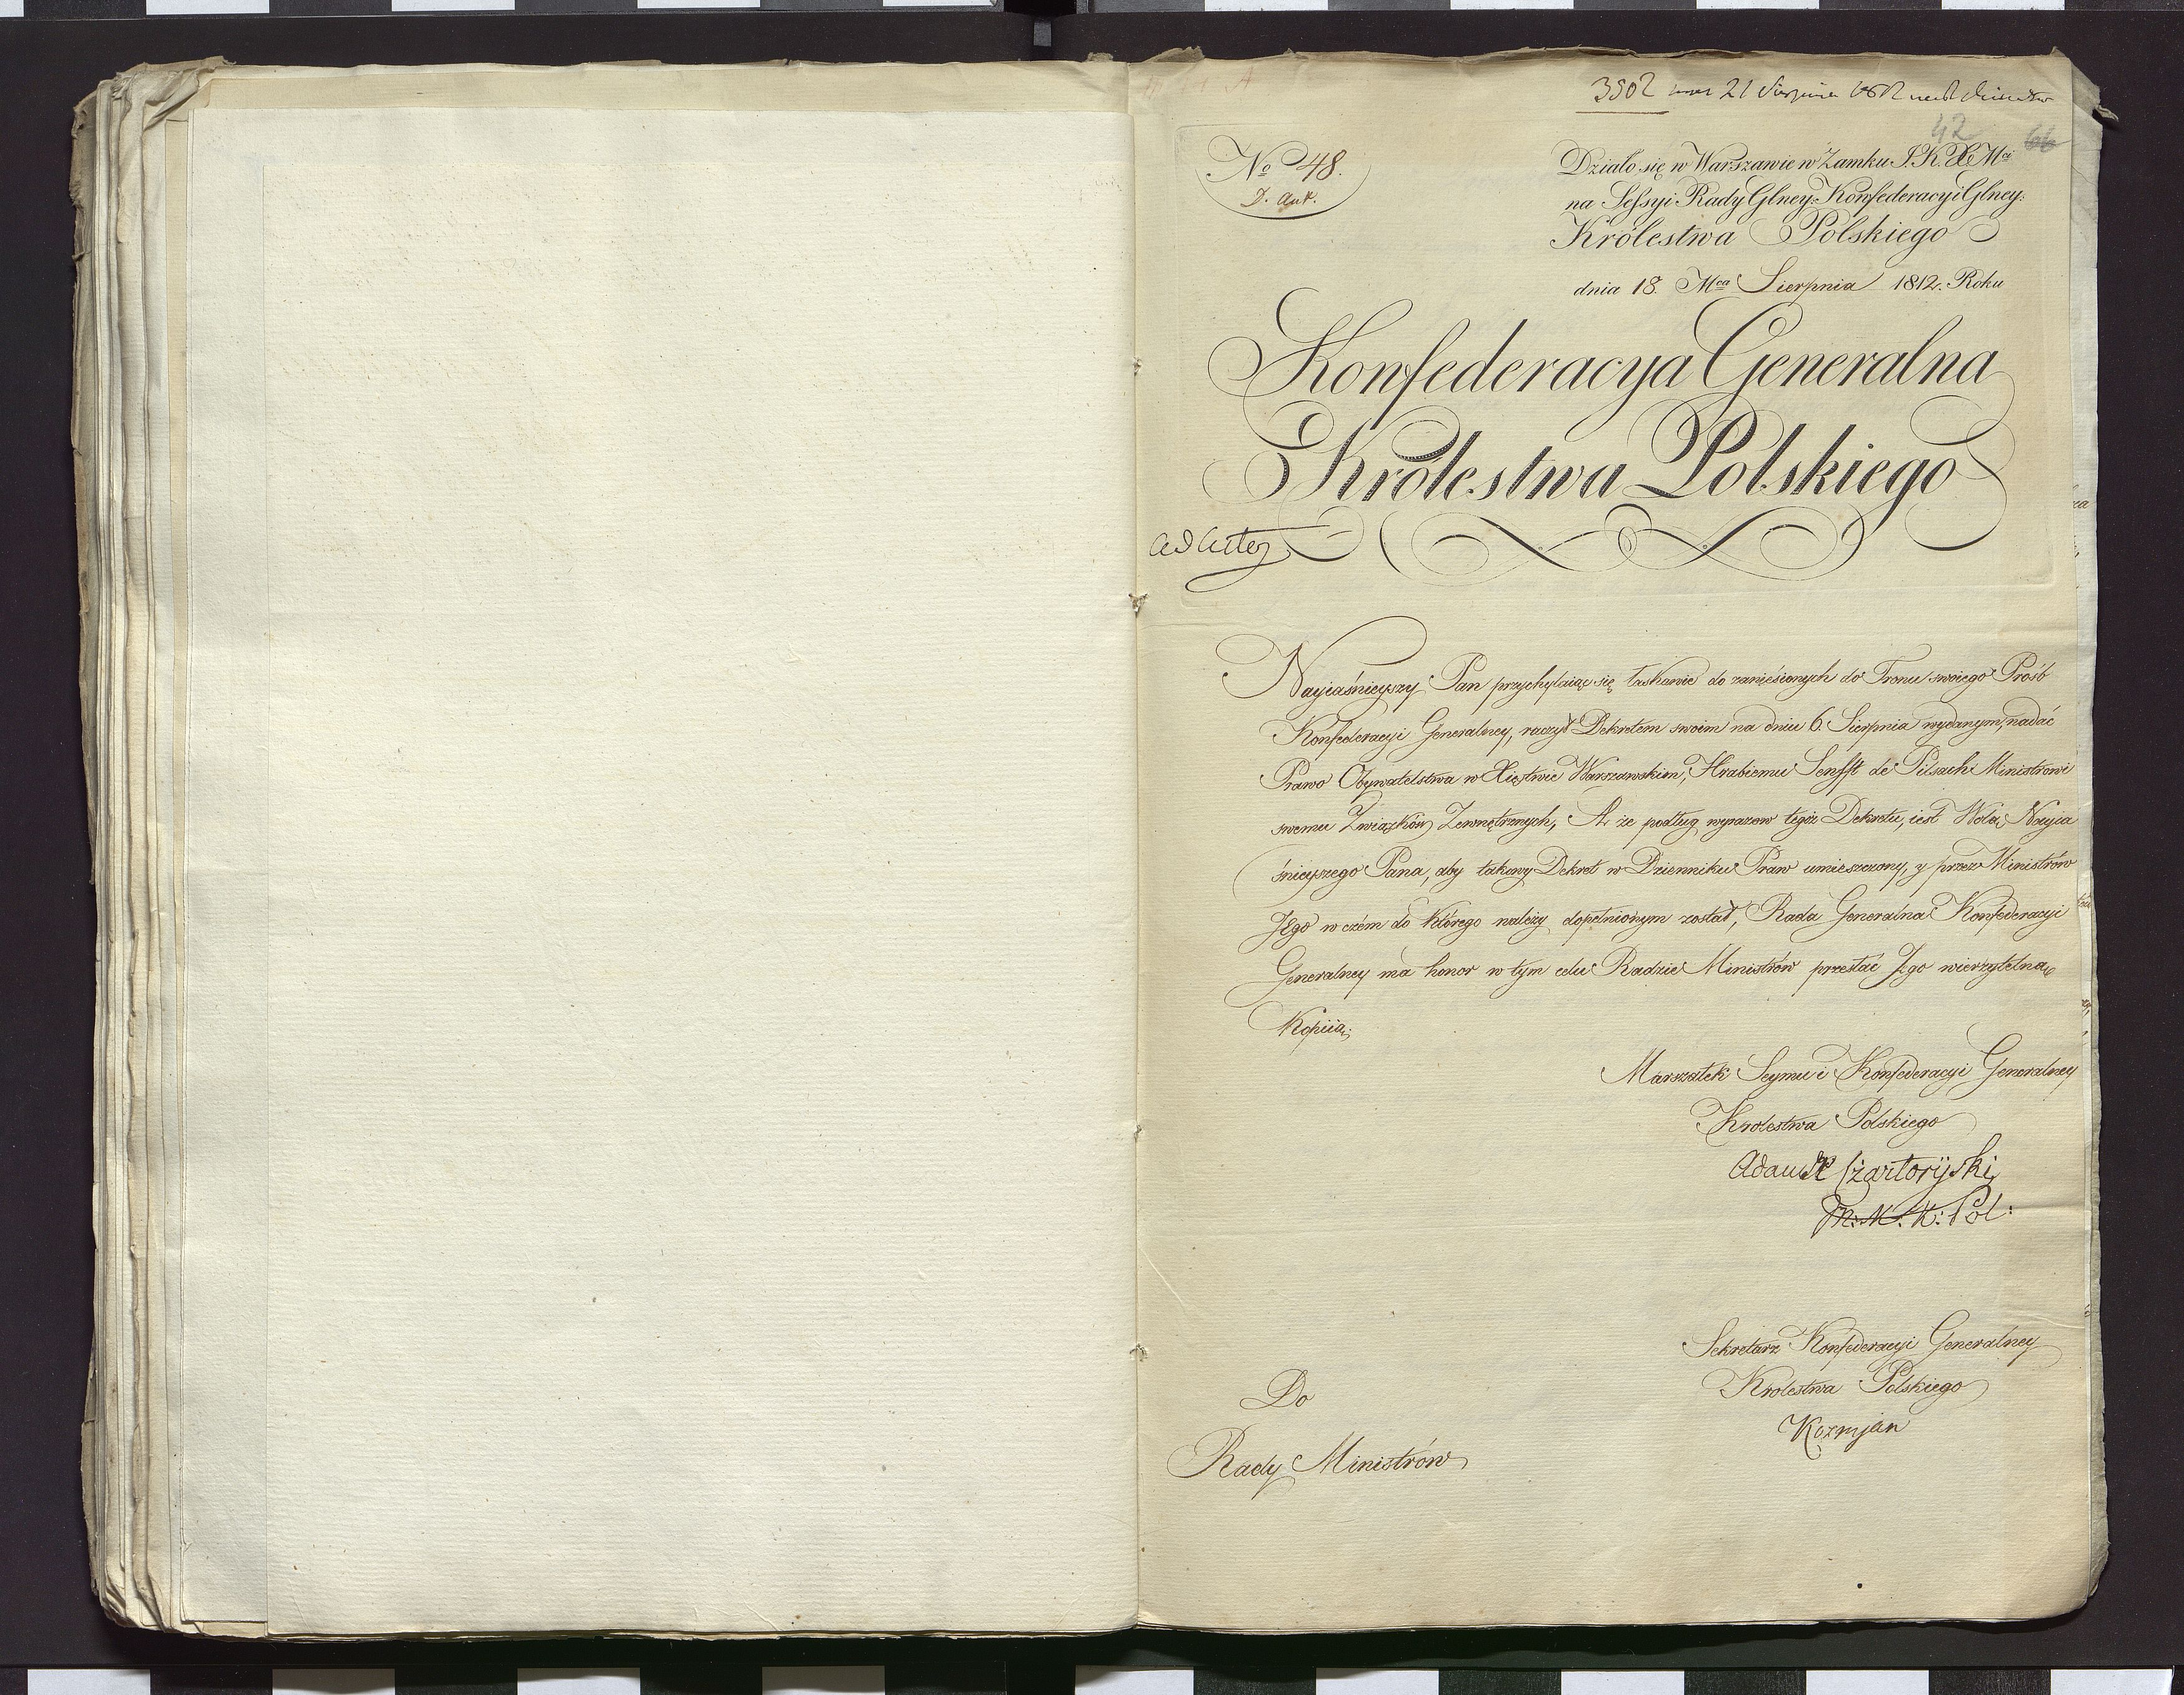 3502 21 Sierpnia
42 66
№ 48.
D. Ant.
Działo się w Warszawie w Zamku J. K. X Mci
na Sessyi Rady Glney: Konfederacyi Glney:
Królestwa Polskiego
dnia 18. Mca Sierpnia 1812. Roku
Konfederacya Generalna
Królestwa Polskiego
ad acta
Nayiaśnieyszy Pan przychylaiąc się łaskawie do zaniesionych do Tronu swoiego Prośb
Konfederacyi Generalney, raczył Dekretem swoim na dniu 6. Sierpnia wydanym, nadać
Prawo Obywatelstwa w Xięstwie Warszawskim, Hrabiemu Senfft de Pilsach Ministrowi
swemu Związków Zewnętrznych, A że podług wyrazow tegóż Dekretu, iest Wolą Nayia
śnieyszego Pana, aby takowy Dekret w Dzienniku Praw umieszczony, y przez Ministrów
Jego w czém do którego należy dopełnionym został, Rada Generalna Konfederacyi
Generalney ma honor w tym celu Radzie Ministrów przesłać Jego wierzytelną
Kopiią.
Marszałek Seymu i Konfederacyi Generalney
Krolestwa Polskiego
Adam X Czartoryski
M. K. Pol:
Sekretarz Konfederacyi Generalney
Krolestwa Polskiego
Kozmjan
Do
Rady Ministrów